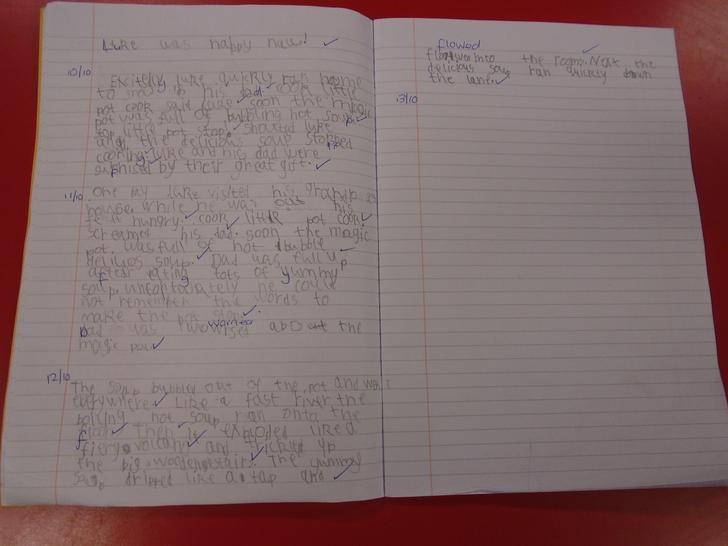 Luke was happy now!
10/10
Exitedly luke quickly ran home
to his dad. cook little
pot cook said luke. soon the magic
pot was full of bubbling hot soup.
little pot stop. shouted luke
and the delicious soup stopped
cooking. luke and his dad were
by their great gift.
11/10
One day luke visited his
house. While he was out his
hungry. cook little pot cook
screamed his dad. soon the magic
pot was full of hot bubble
soup. Dad was full up
after eating lots of yummy
soup. he could
not remember the words to
make the pot stop.
worried
Dad was about the
magic pot.
12/10
The soup bubbled out of the pot and went
everywhere. Like a fast river the
boiling hot soup ran onto the
floor. Then it exploded liked
fiery volcano and trickled up
the big wooden stairs. The yummy
soup dripped like a tap and
flowed
into the rooms. Next the
delicious soup ran quickly down
the lane.
13/10